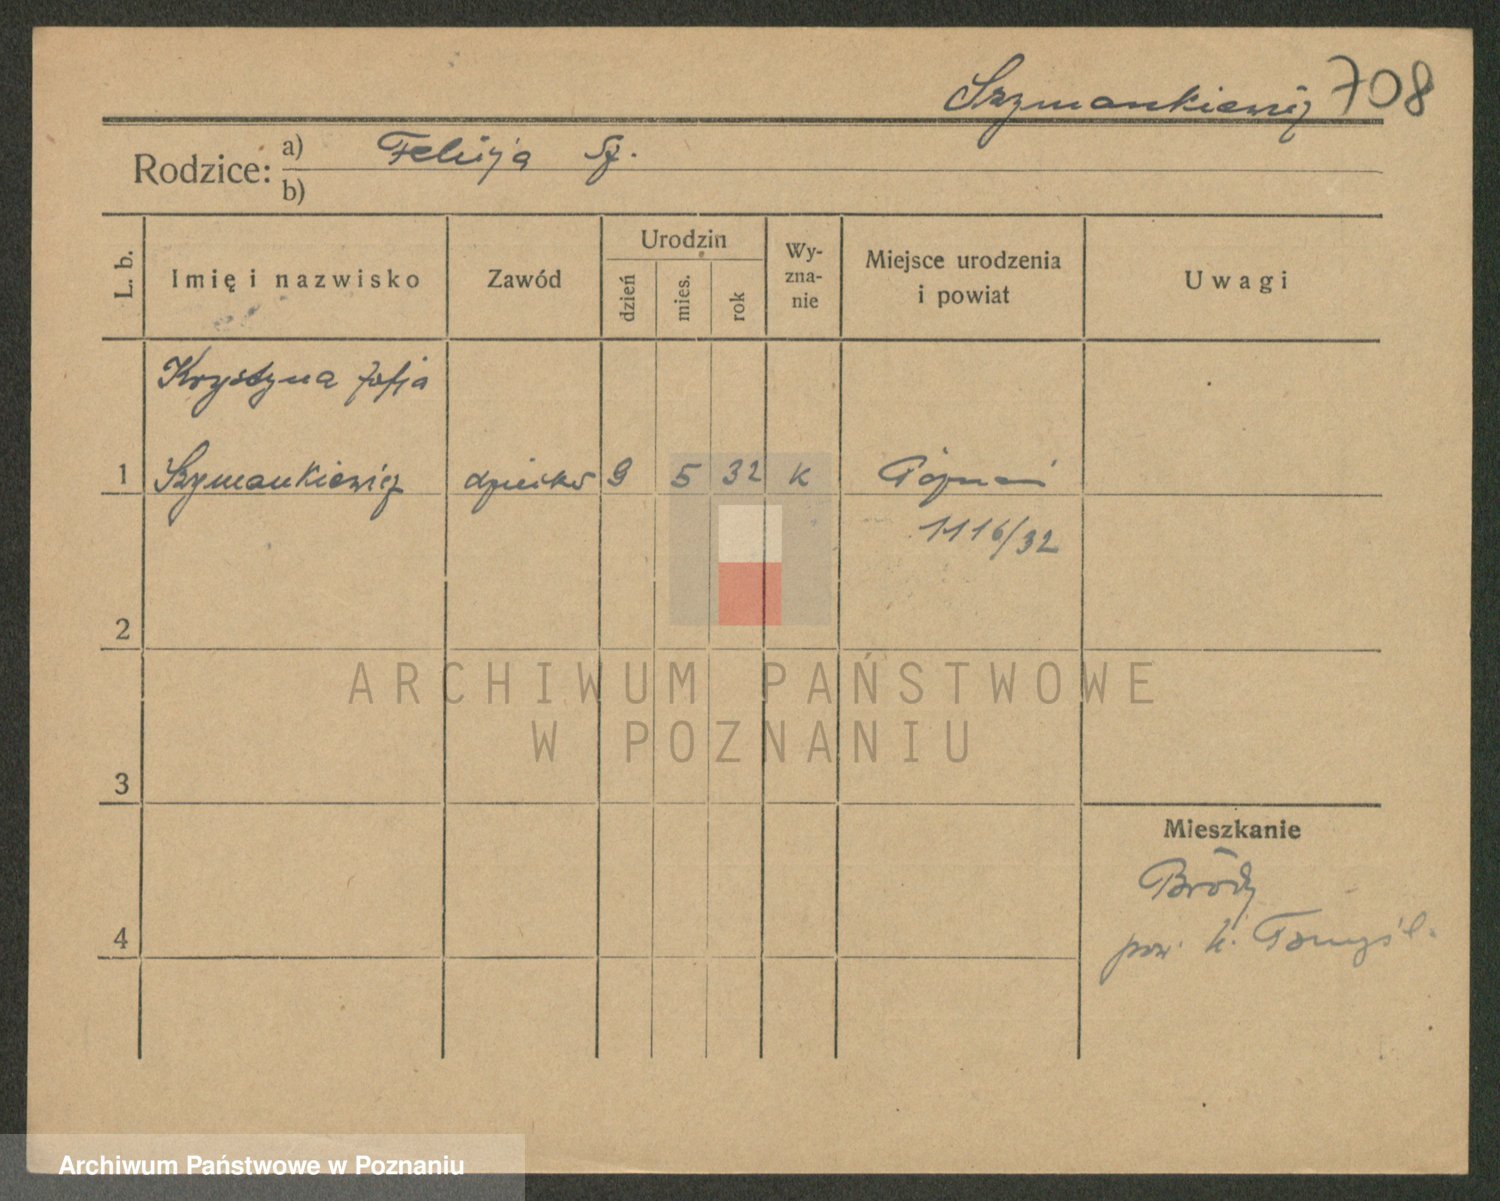 Szymankiewicz 708
Rodzice: a) Felicja Sz.
b)
L. b.
Imię i nazwisko
Zawód
Urodzin
dzień
mies.
rok
Wy-
zna-
nie
Miejsce urodzenia
i powiat
Uwagi
Krystyna Zofja
1 Szymankiewicz dziecko 9 5 32 K Poznań
1116/32
2
ARCHIWUM PAŃSTWOWE
W POZNANIU
3
Mieszkanie
Bródy
4
pow. N. Tomyśl.
Archiwum Państwowe w Poznaniu